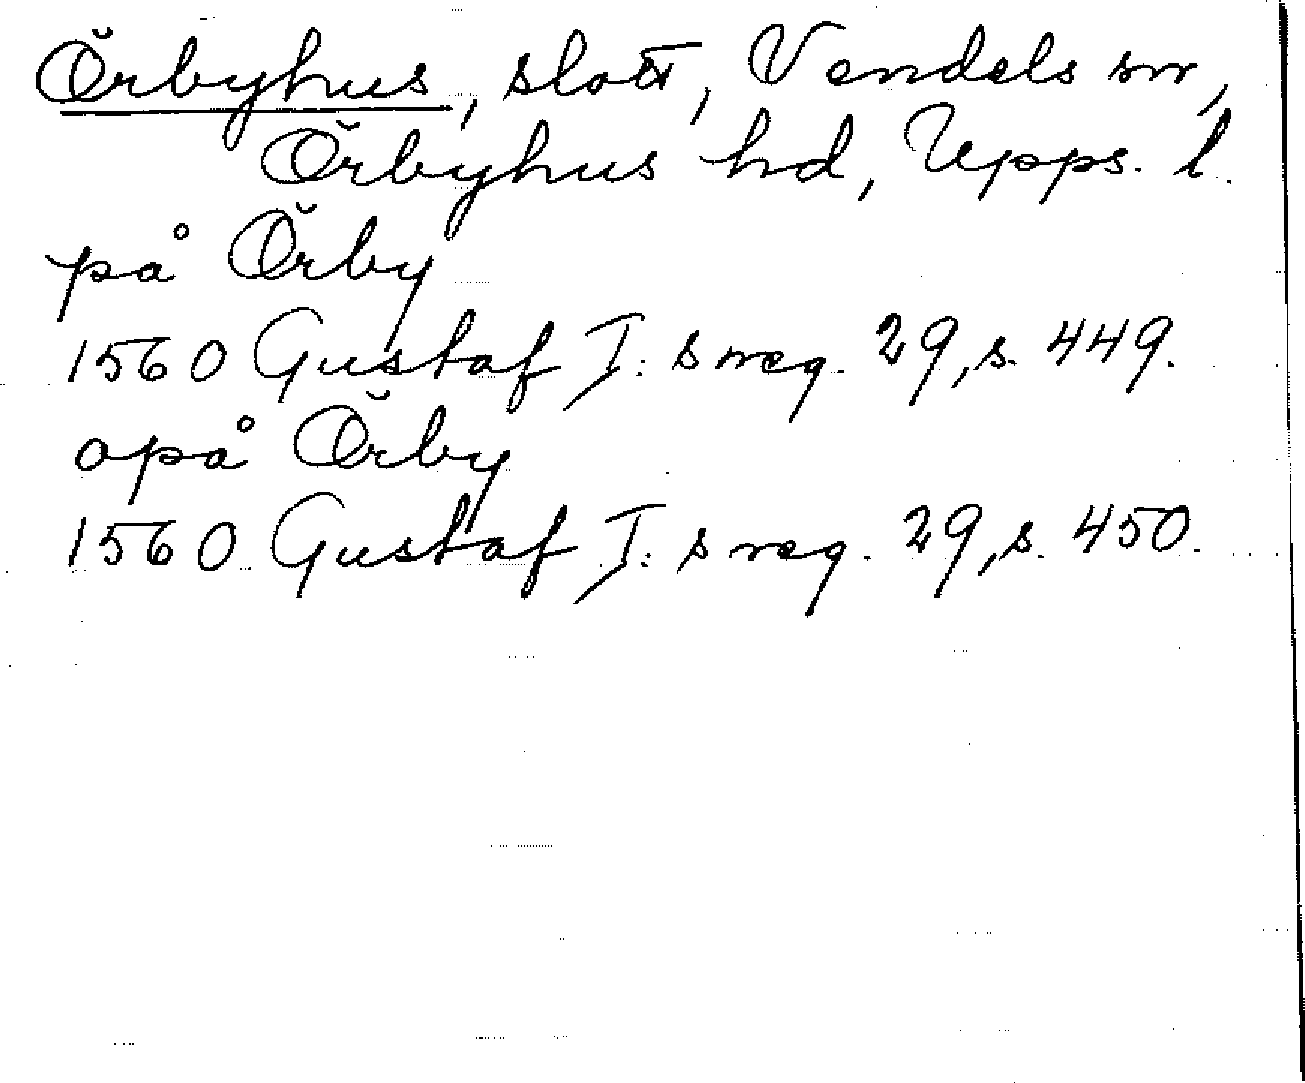 Örbyhus, slott, Vendels sn,
Örbyhus hd, Upps. l.
på Örby
1560 Gustaf I: s reg. 29, s. 449.
opå Örby
1560 Gustaf I: s reg. 29, s. 450.